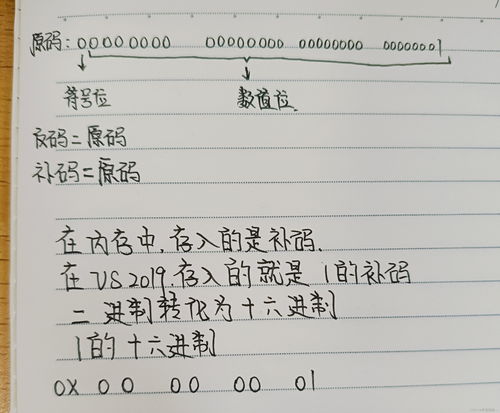 原码：00000000 00000000 00000000 00000001
符号位 数值位
反码=原码
补码=原码
在内存中，存入的是补码.
在VS2019,存入的就是1的补码
二进制转化为十六进制
1的十六进制
0X 00 00 00 01